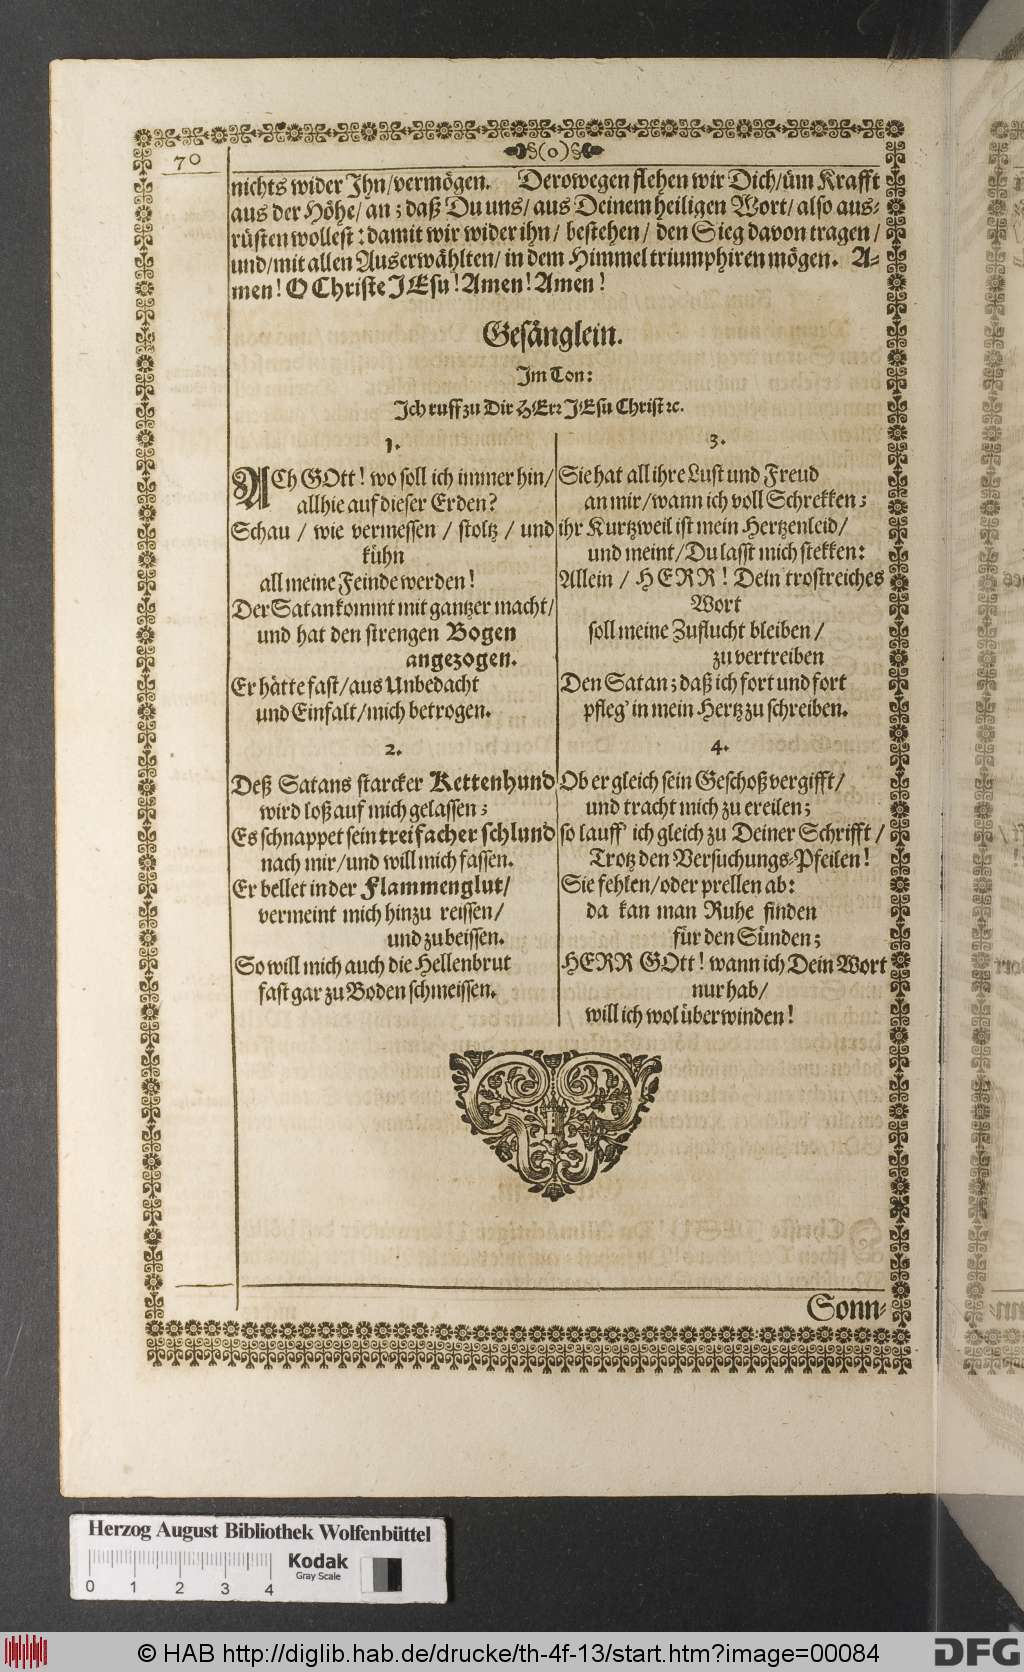 70
§(o)§
nichts wider Ihn/vermögen. Derowegen flehen wir Dich/üm Krafft
aus der Höhe/ an; daß Du uns/ aus Deinem heiligen Wort/ also aus-
rüsten wollest: damit wir wider ihn/ bestehen/ den Sieg davon tragen/
und/mit allen Auserwählten/ in dem Himmel triumphiren mögen. A-
men! O Christe JEsu! Amen! Amen!
Gesänglein.
Im Ton:
Ich ruff zu Dir HErr JEsu Christ ꝛc.
1.
ACh GOtt! wo soll ich immer hin/
allhie auf dieser Erden?
Schau / wie vermessen / stoltz / und
kühn
all meine Feinde werden!
Der Satan kommt mit gantzer macht/
und hat den strengen Bogen
angezogen.
Er hätte fast/aus Unbedacht
und Einfalt/mich betrogen.
2.
Deß Satans starcker Kettenhund
wird loß auf mich gelassen;
Es schnappet sein treifacher schlund
nach mir/und will mich fassen.
Er bellet in der Flammenglut/
vermeint mich hinzu reissen/
und zu beissen.
So will mich auch die Hellenbrut
fast gar zu Boden schmeissen.
3.
Sie hat all ihre Lust und Freud
an mir/wann ich voll Schrekken;
ihr Kurtzweil ist mein Hertzenleid/
und meint/Du lasst mich stekken:
Allein / HERR! Dein trostreiches
Wort
soll meine Zuflucht bleiben/
zu vertreiben
Den Satan; daß ich fort und fort
pfleg' in mein Hertz zu schreiben.
4.
Ob er gleich sein Geschoß vergifft/
und tracht mich zu ereilen;
so lauff' ich gleich zu Deiner Schrifft /
Trotz den Versuchungs-Pfeilen!
Sie fehlen/oder prellen ab:
da kan man Ruhe finden
für den Sünden;
HERR GOtt! wann ich Dein Wort
nur hab/
will ich wol überwinden!
Sonn-
Herzog August Bibliothek Wolfenbüttel
0 1 2 3 4
Kodak
Gray Scale
© HAB http://diglib.hab.de/drucke/th-4f-13/start.htm?image=00084
DFG